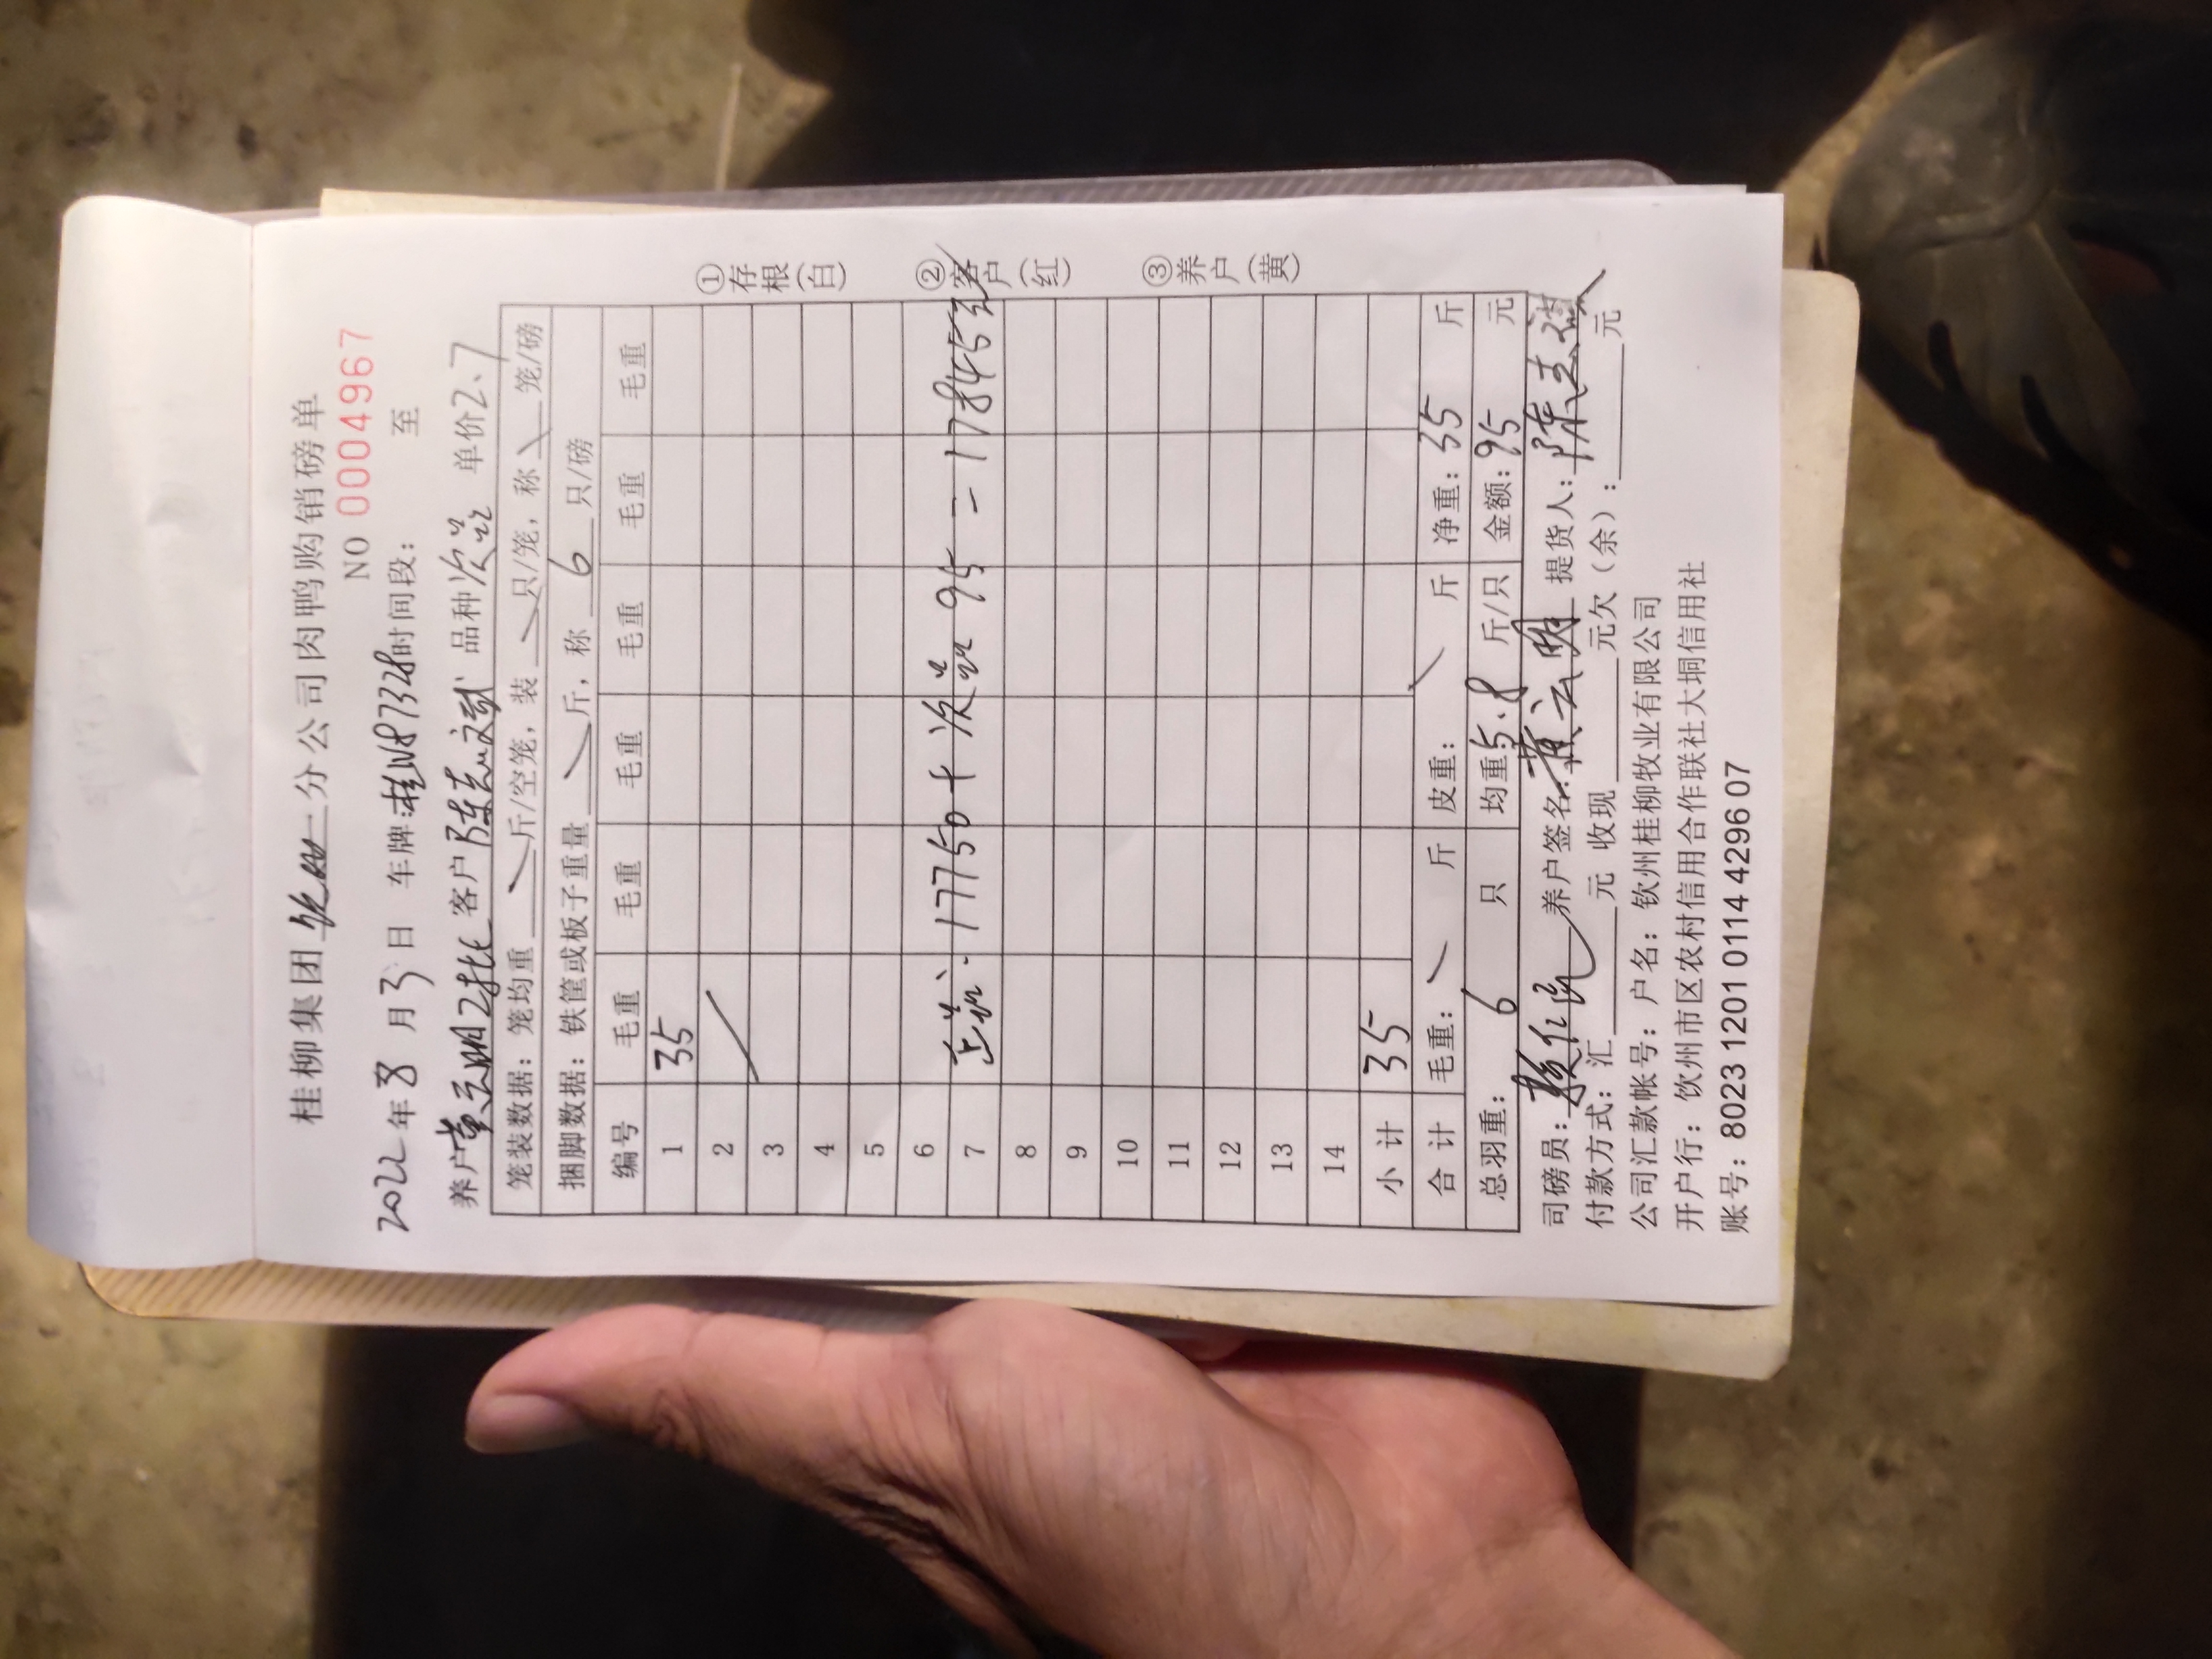 桂柳集团 分公司肉鸭购销磅单
NO 0004967
2022年8月3日 车牌:桂N87328时间段: 至
养户黄云明2批 客户陈志斌 品种次品 单价2.7
笼装数据: 笼均重 斤/空笼, 装 只/笼, 称 笼/磅
捆脚数据: 铁筐或板子重量 斤, 称 6 只/磅
编号 毛重 毛重 毛重 毛重 毛重 毛重
1 35
2
3
4
5
6
7 正品: 17750+次品95=17845元
8
9
10
11
12
13
14
小计 35
合计 毛重: 斤 皮重: 斤 净重: 35 斤
总羽重: 6 只 均重5.8 斤/只 金额: 95 元
司磅员: 养户签名: 黄云明 提货人: 陈志斌
付款方式: 汇 元 收现 元欠(余): 元
公司汇款帐号: 户名: 钦州桂柳牧业有限公司
开户行: 饮州市区农村信用合作联社大垌信用社
账号: 8023 1201 0114 4296 07
①存根(白)
②客户(红)
③养户(黄)